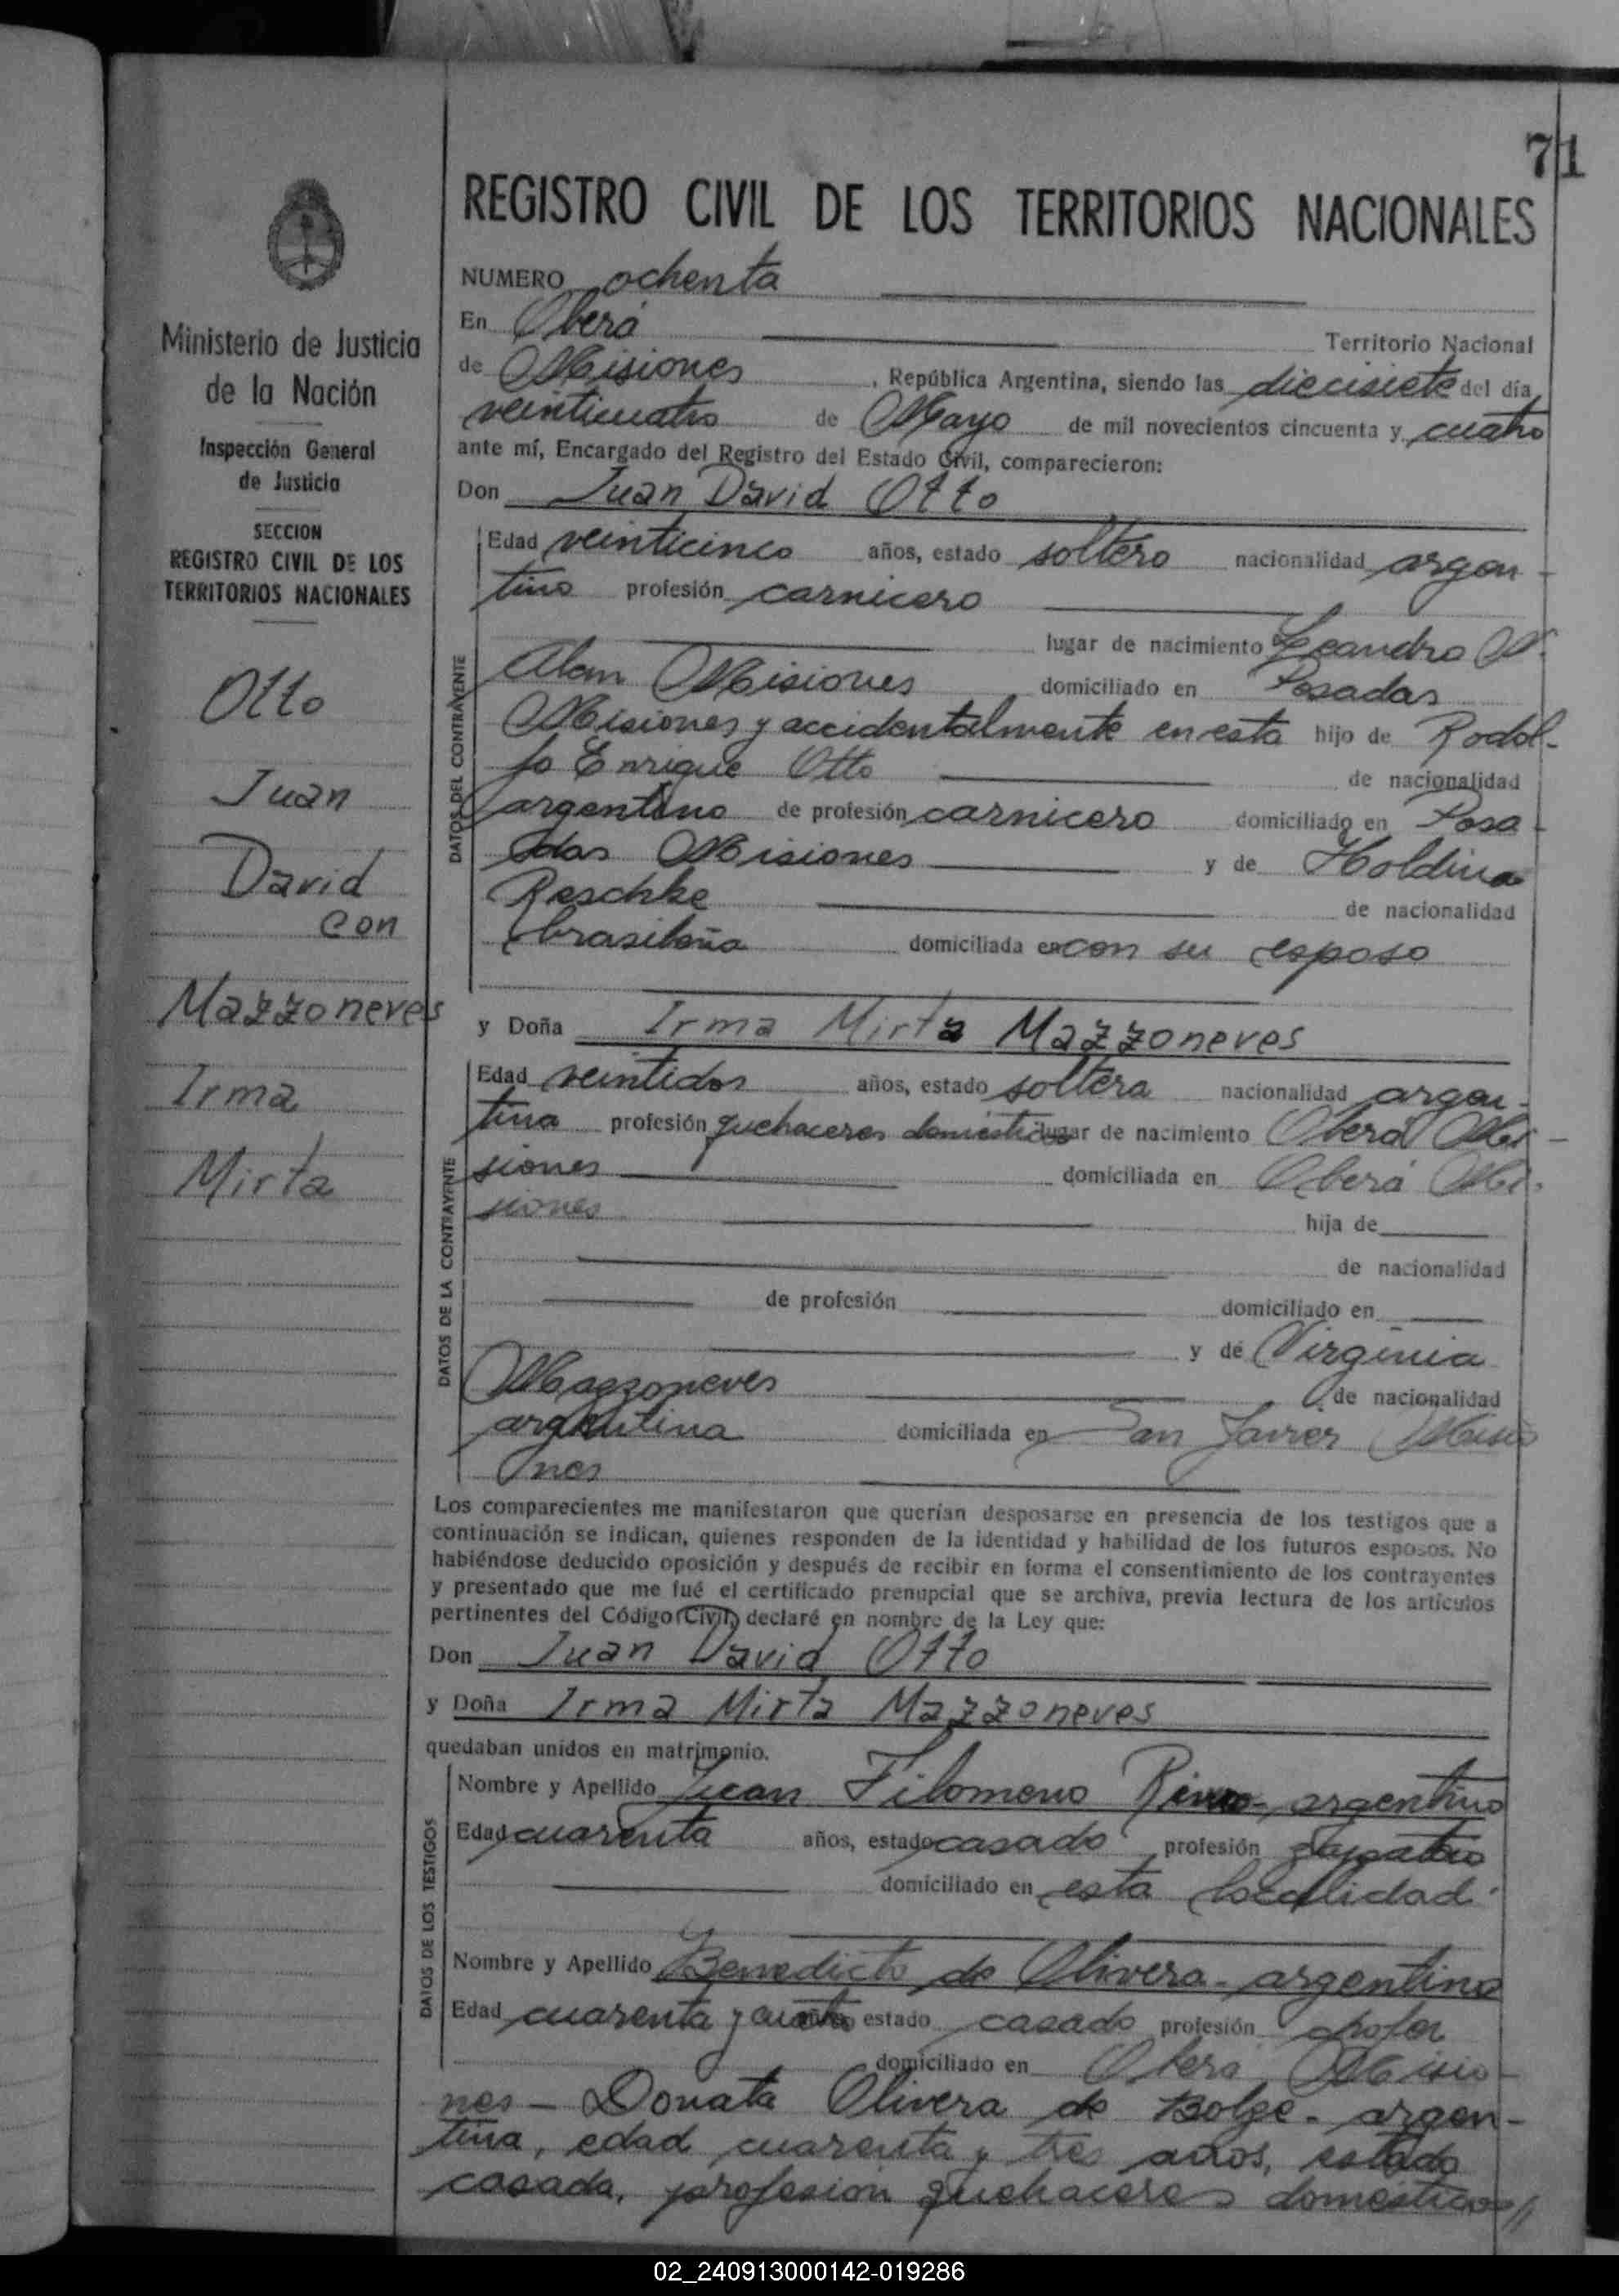 71
REGISTRO CIVIL DE LOS TERRITORIOS NACIONALES
Ministerio de Justicia
de la Nación
Inspección General
de Justicia
SECCION
REGISTRO CIVIL DE LOS
TERRITORIOS NACIONALES
Otto
Juan
David
con
Mazzoneves
Irma
Mirta
NUMERO ochenta
En Oberá Territorio Nacional
de Misiones, República Argentina, siendo las diecisiete del día
veinticuatro de Mayo de mil novecientos cincuenta y cuatro
ante mí, Encargado del Registro del Estado Civil, comparecieron:
Don Juan David Otto
DATOS DEL CONTRAYENTE
Edad veinticinco años, estado soltero nacionalidad argen-
tino profesión carnicero
lugar de nacimiento Leandro N.
Alem Misiones domiciliado en Posadas
Misiones y accidentalmente en esta hijo de Rodol-
fo Enrique Otto de nacionalidad
argentino de profesión carnicero domiciliado en Posa-
das Misiones y de Holdina
Reschke de nacionalidad
brasileña domiciliada en con su esposo
y Doña Irma Mirta Mazzoneves
DATOS DE LA CONTRAYENTE
Edad veintidos años, estado soltera nacionalidad argen-
tina profesión quehaceres domesticos lugar de nacimiento Oberá Mi-
siones domiciliada en Oberá Mi-
siones hija de
de nacionalidad
de profesión domiciliado en
y de Virginia
Mazzoneves de nacionalidad
argentina domiciliada en San Javier Misio
nes
Los comparecientes me manifestaron que querían desposarse en presencia de los testigos que a
continuación se indican, quienes responden de la identidad y habilidad de los futuros esposos. No
habiéndose deducido oposición y después de recibir en forma el consentimiento de los contrayentes
y presentado que me fué el certificado prenupcial que se archiva, previa lectura de los artículos
pertinentes del Código Civil, declaré en nombre de la Ley que:
Don Juan David Otto
y Doña Irma Mirta Mazzoneves
quedaban unidos en matrimonio.
DATOS DE LOS TESTIGOS
Nombre y Apellido Juan Filomeno - argentino
Edad cuarenta años, estado casado profesión zapatero
domiciliado en esta localidad.
Nombre y Apellido Benedicto de Olivera - argentino
Edad cuarenta y cuatro estado casado profesión chofer
domiciliado en Oberá Misio-
nes - Donata Olivera de Bolge - argen-
tina, edad cuarenta y tres años, estado
casada, profesión quehaceres domesticos//
02_240913000142-019286